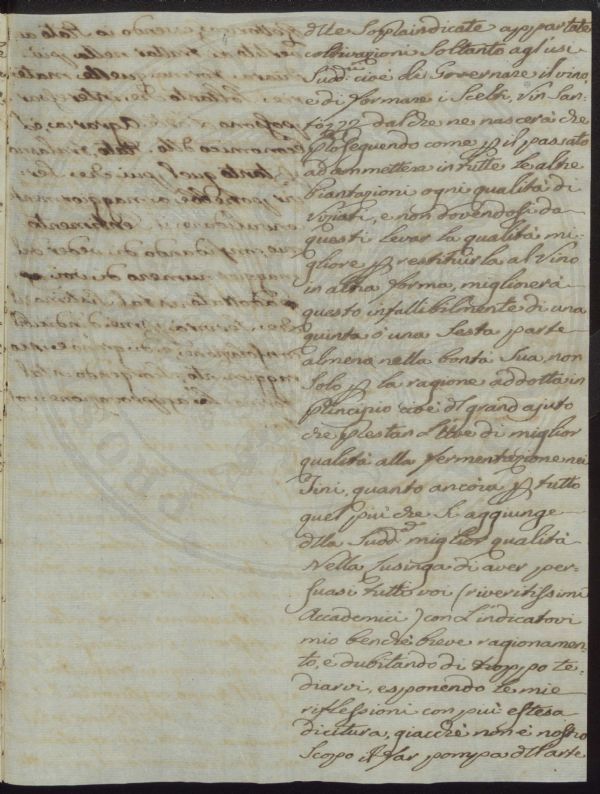 dlle Soplaindicate appartate
coltivazioni Soltanto agl'usi
Sudd:ti cioè di Governare il vino,
e di formare i Scelti, Vin San-
ti &c. dal che ne nascerà che
plosequendo come p il passato
ad ammettere in tutte le altre
Piantazioni ogni qualità di
Viziati, e non dovendosi da
questi levar la qualità mi-
gliore p restituirla al Vino
in altra forma, migliorerà
questo infallibilmente di una
quinta o una Sesta parte
almeno nella bontà Sua, non
Solo p la ragione addotta in
plincipio cioè dl grand ajuto
che plestan l'Uve di miglior
qualità alla fermentazione nei
Tini, quanto ancora p tutto
quel più che Si aggiunge
dlla Sudd:a miglior qualità
Nella lusinga di aver per-
suasi tutti voi (riveritissimi
Accademici) con l'indicatovi
mio benchè breve ragionamen-
to, e dubitando di troppo te-
diarvi, esponendo le mie
riflessioni con più estesa
dicitura, giacchè non è nostro
Scopo il far pompa dll'arte